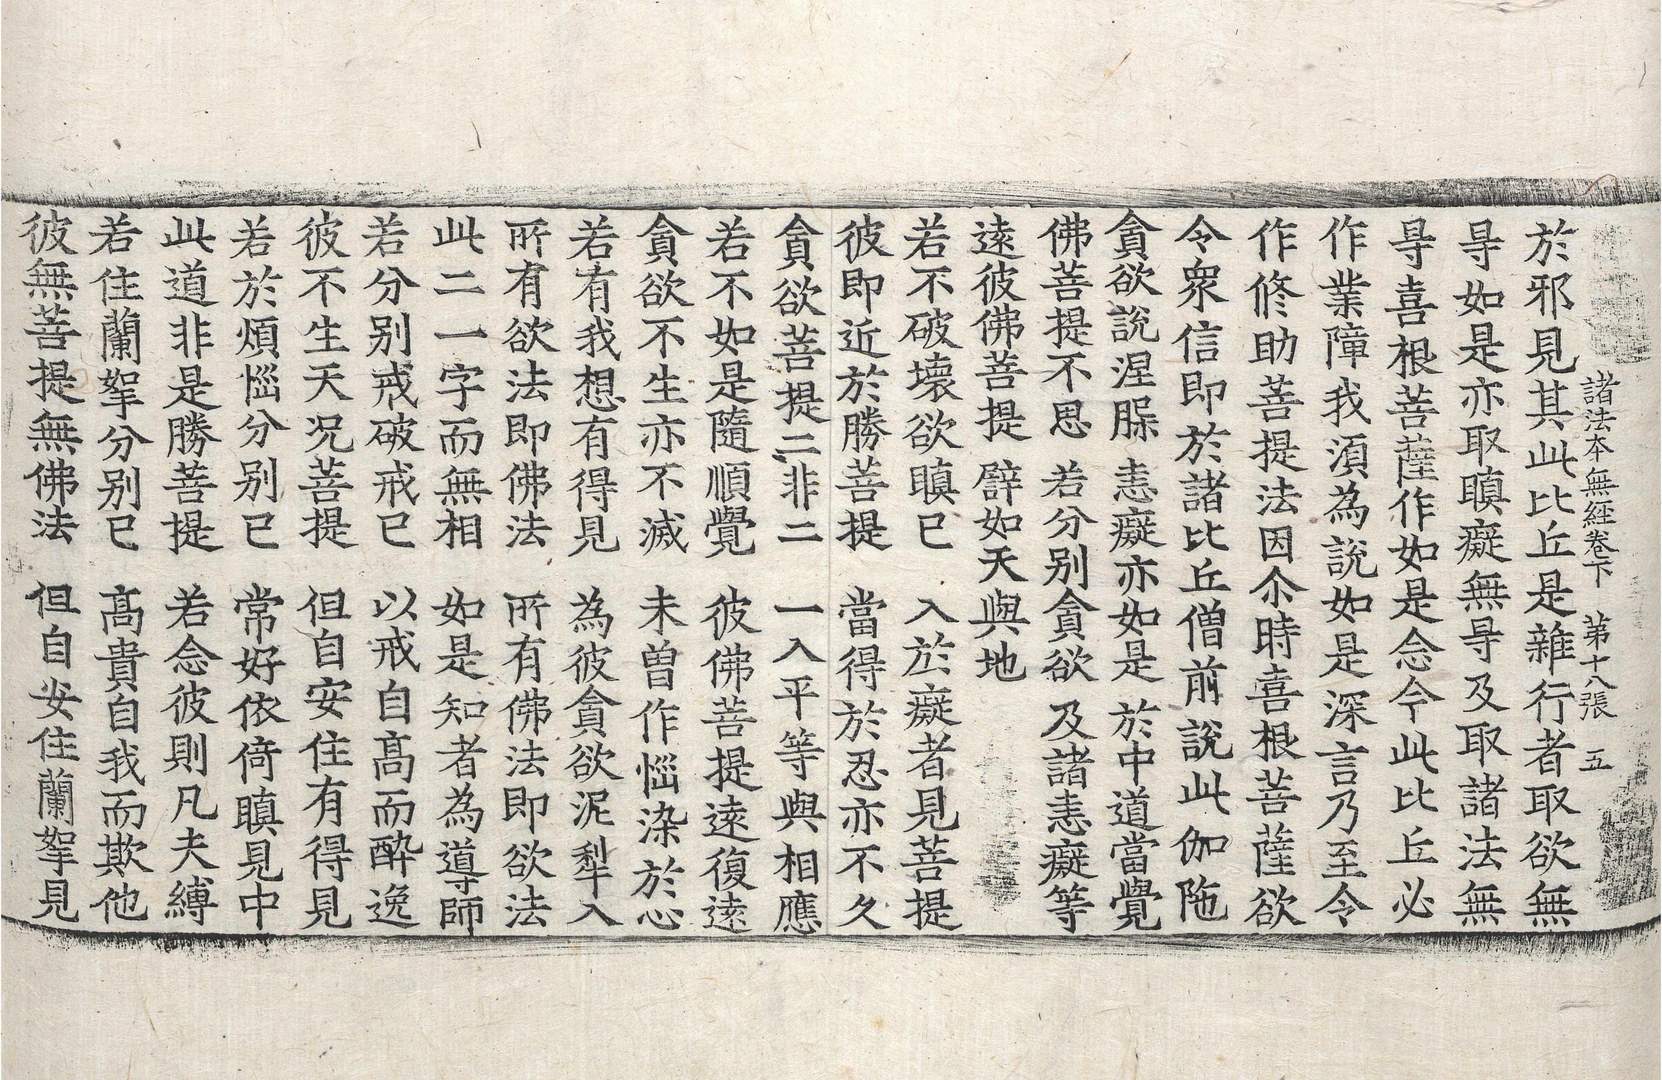 諸法本無經卷下　第十八張　五
於邪見其此比丘是雜行者取欲無
㝵如是亦取瞋癡無㝵及取諸法無
㝵喜根菩薩作如是念今此比丘必
作業障我須為說如是深言乃至令
作修助菩提法因尒時喜根菩薩欲
令衆信即於諸比丘僧前說此伽陁
貪欲說涅槃　恚癡亦如是　於中道當覺
佛菩提不思　若分別貪欲　及諸恚癡等
遠彼佛菩提　譬如天與地
若不破壞欲瞋已　入於癡者見菩提
彼即近於勝菩提　當得於忍亦不久
貪欲菩提二非二　一入平等與相應
若不如是隨順覺　彼佛菩提遠復遠
貪欲不生亦不滅　未曾作惱染於心
若有我想有得見　為彼貪欲泥犁入
所有欲法即佛法　所有佛法即欲法
此二一字而無相　如是知者為導師
若分別戒破戒已　以戒自高而醉逸
彼不生天况菩提　但自安住有得見
若於煩惱分別已　常好依倚瞋見中
此道非是勝菩提　若念彼則凡夫縛
若住蘭拏分別已　高貴自我而欺他
彼無菩提無佛法　但自安住蘭拏見